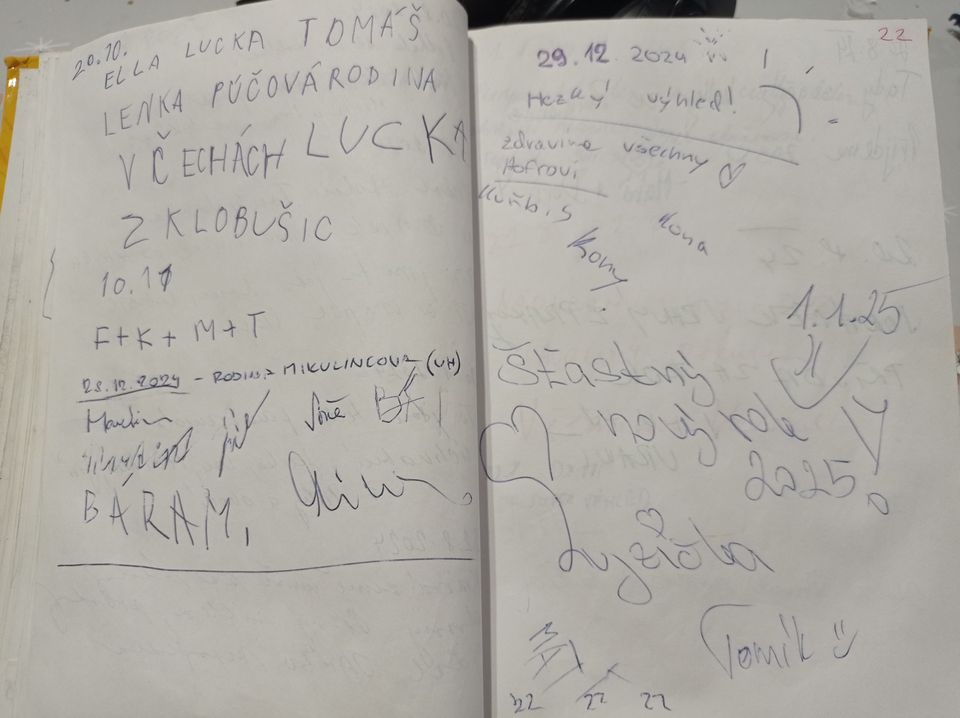 20.10.
ELLA LUCKA TOMÁŠ
LENKA PÚČOVÁ RODINA
V ČECHÁCH LUCKA
Z KLOBUŠIC
10.11
F+K+M+T
28.12.2024 - RODINA MIKULINCOVA (UH)
Martin
BÁRA M.
22
29.12. 2024
Hezký výhled!
zdravíme všechny
Hofrovi
Kuřb, s
Kony
Kona
1.1.25
Šťastný
nový rok
2025
Lyzička
Tomík
22 22 22